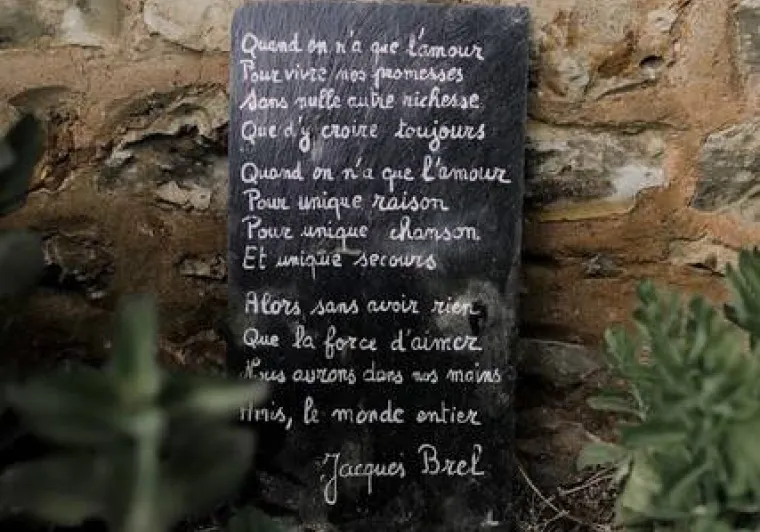 Quand on n'a que l'amour
Pour vivre nos promesses
Sans nulle autre richesse
Que d'y croire toujours
Quand on n'a que l'amour
Pour unique raison
Pour unique chanson
Et unique secours
Alors sans avoir rien
Que la force d'aimer
Nous aurons dans nos mains
Amis, le monde entier
Jacques Brel